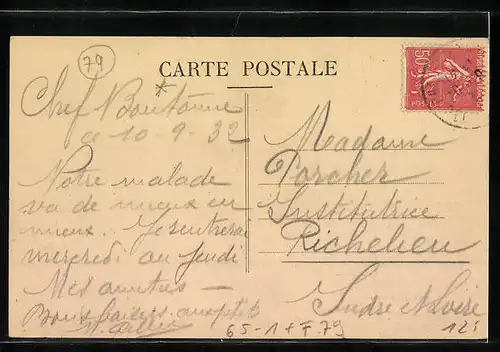 79
CARTE POSTALE
50c
Chef Boutonne
ce 10-9-32
Notre malade
va de mieux en
mieux. Je rentrerai
mercredi au jeudi
Mes amitiés —
Bons baisers aux ptits
Madame
Porcher
Institutrice
Richelieu
Indre et Loire
65-1+F.79
12